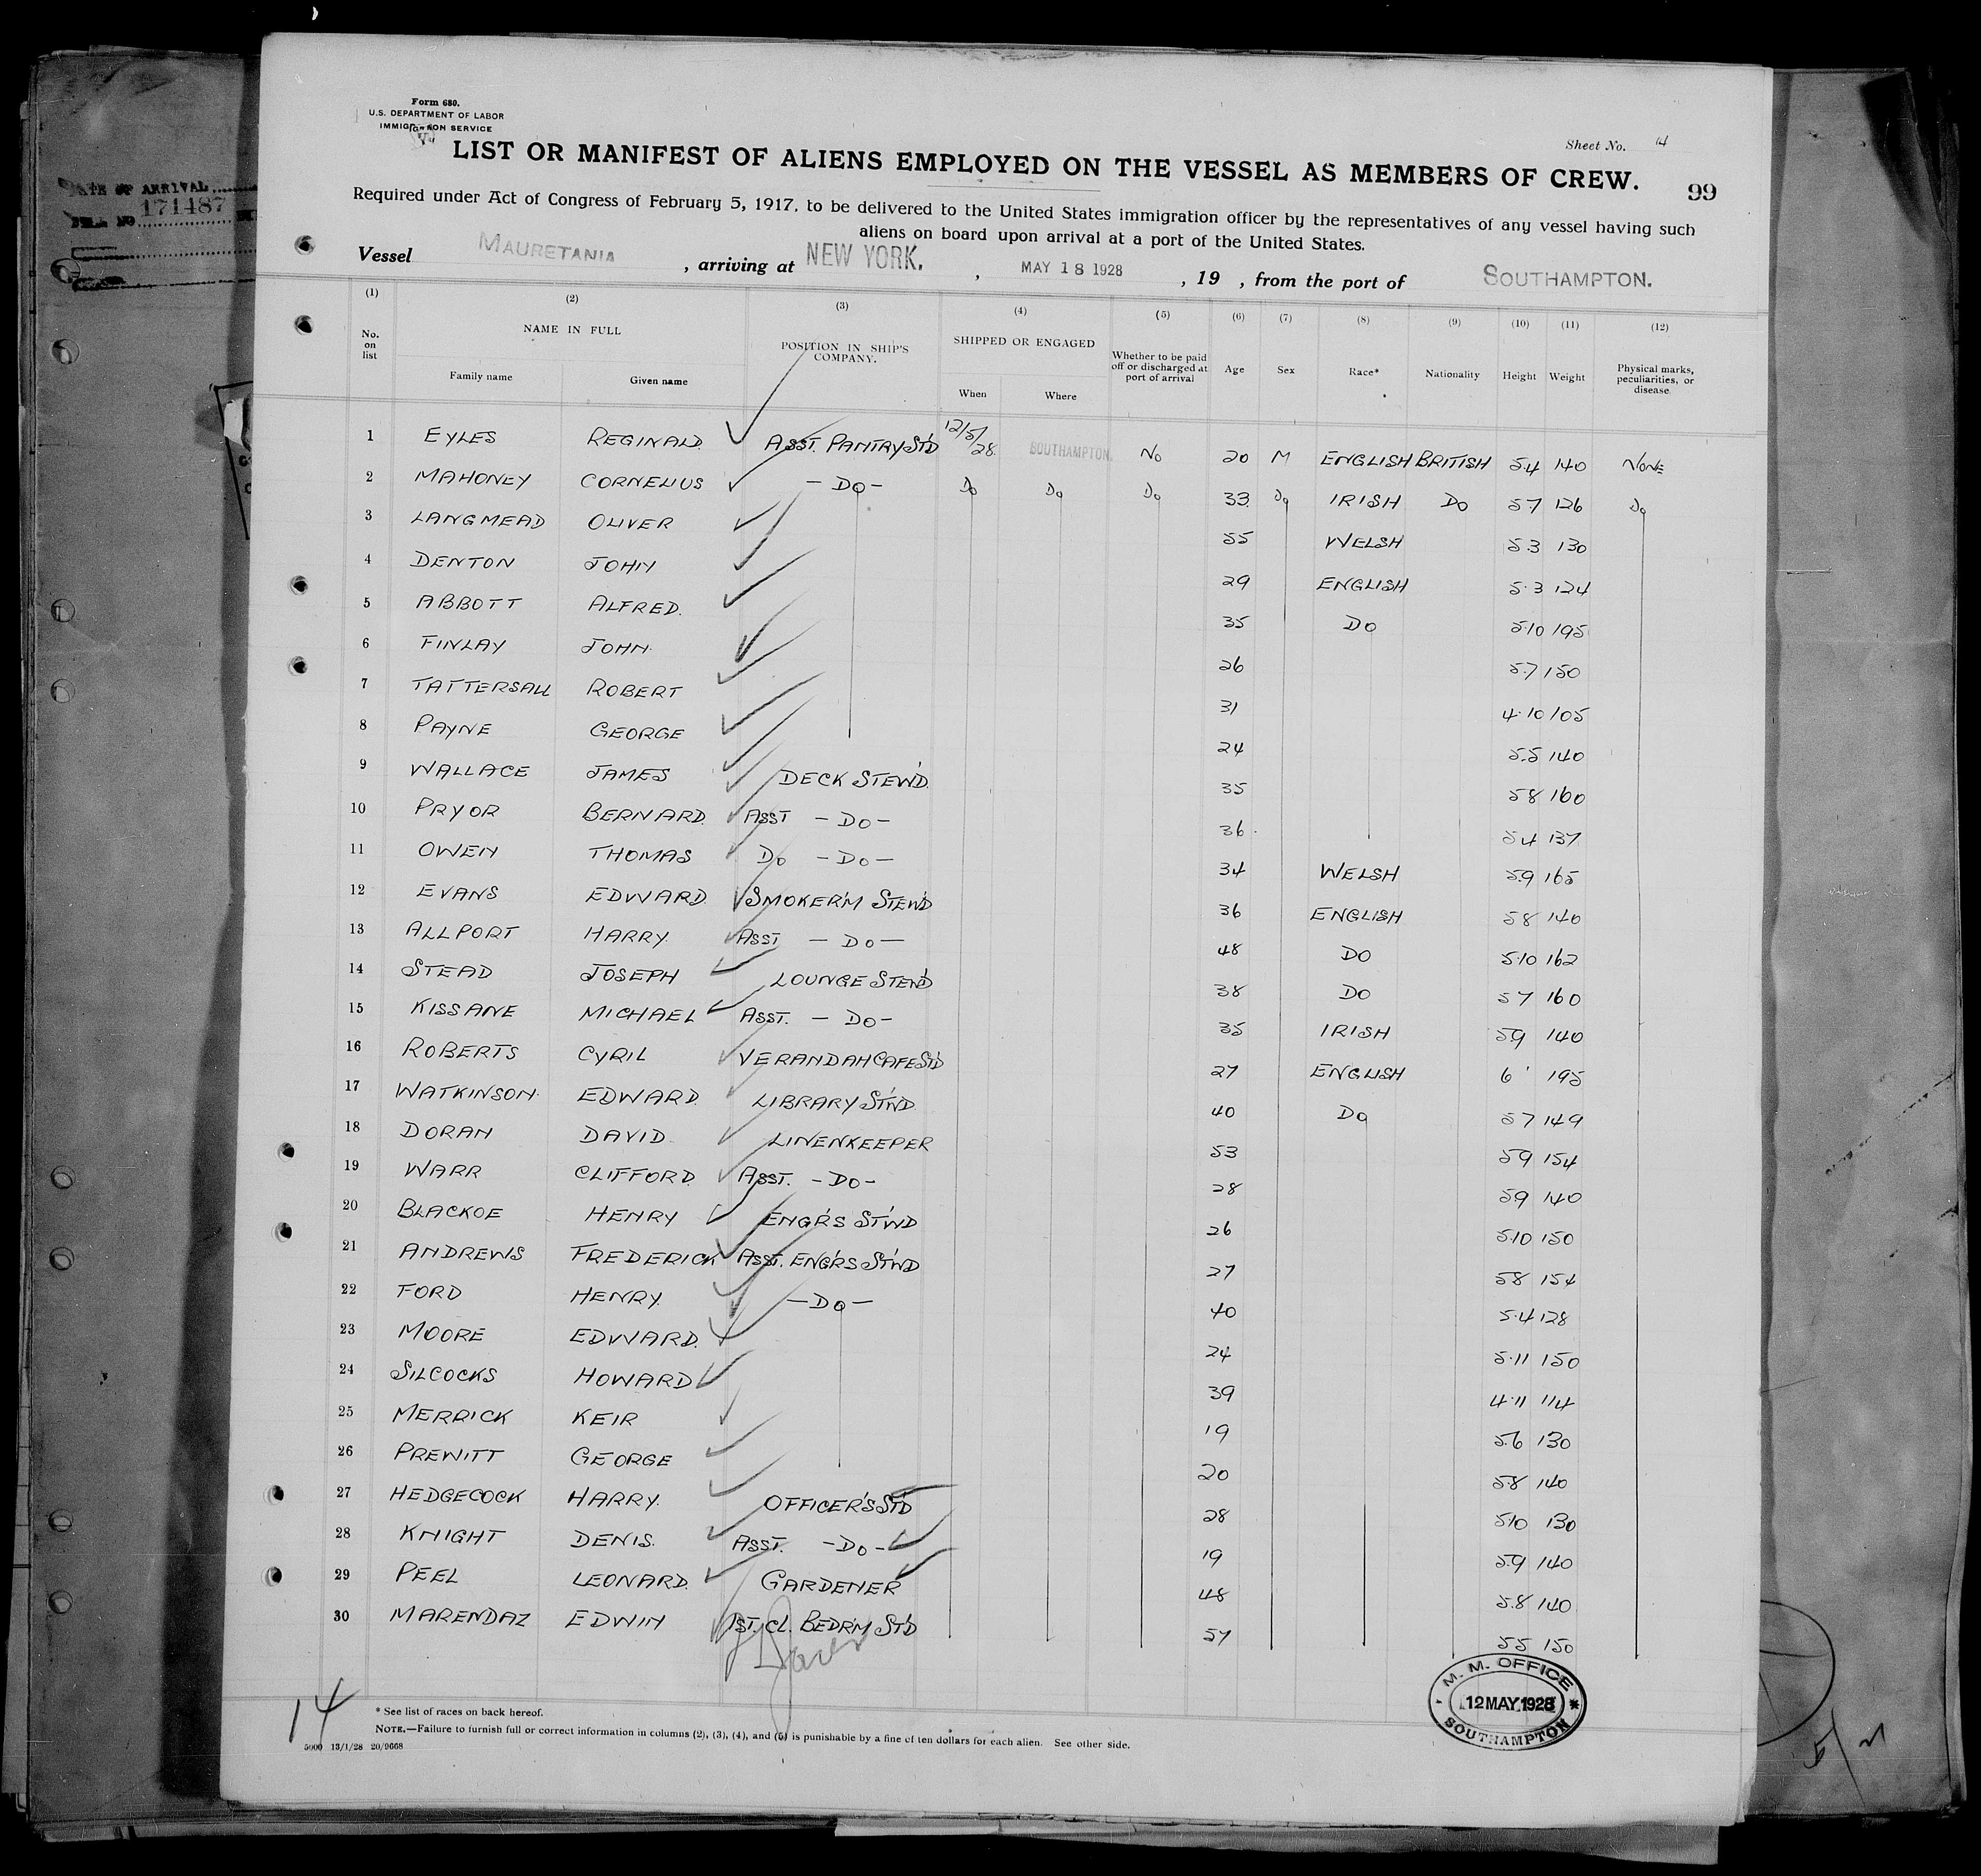 DATE OF ARRIVAL
171487
Form 680.
U.S. DEPARTMENT OF LABOR
IMMIGRATION SERVICE
Sheet No. 14
LIST OR MANIFEST OF ALIENS EMPLOYED ON THE VESSEL AS MEMBERS OF CREW.
99
Required under Act of Congress of February 5, 1917, to be delivered to the United States immigration officer by the representatives of any vessel having such
aliens on board upon arrival at a port of the United States.
Vessel MAURETANIA, arriving at NEW YORK., MAY 18 1928, 19 , from the port of SOUTHAMPTON.
(1) (2) (3) (4) (5) (6) (7) (8) (9) (10) (11) (12)
No. on list NAME IN FULL Family name Given name POSITION IN SHIP'S COMPANY. SHIPPED OR ENGAGED When Where Whether to be paid off or discharged at port of arrival Age Sex Race* Nationality Height Weight Physical marks, peculiarities, or disease.
1 EYLES REGINALD. ASST. PANTRY STD 12/5/28. SOUTHAMPTON. NO 20 M ENGLISH BRITISH 5.4 140 NONE
2 MAHONEY CORNELIUS -DO- DO DO DO 33. DO IRISH DO 5.7 126 DO
3 LANGMEAD OLIVER 55 WELSH 5.3 130
4 DENTON JOHN 29 ENGLISH 5.3 124
5 ABBOTT ALFRED. 35 DO 5.10 195
6 FINLAY JOHN. 26 5.7 150
7 TATTERSALL ROBERT 31 4.10 105
8 PAYNE GEORGE 24 5.5 140
9 WALLACE JAMES DECK STEW'D. 35 5.8 160
10 PRYOR BERNARD. ASST -DO- 36. 5.4 137
11 OWEN THOMAS DO -DO- 34 WELSH 5.9 165
12 EVANS EDWARD. SMOKER'M STEW'D 36 ENGLISH 5.8 140
13 ALLPORT HARRY. ASST -DO- 48 DO 5.10 162
14 STEAD JOSEPH LOUNGE STEW'D 38 DO 5.7 160
15 KISSANE MICHAEL ASST. -DO- 35 IRISH 5.9 140
16 ROBERTS CYRIL VERANDAH CAFE ST'D 27 ENGLISH 6' 195
17 WATKINSON. EDWARD. LIBRARY ST'WD. 40 DO 5.7 149
18 DORAN DAVID. LINENKEEPER 53 5.9 154
19 WARR CLIFFORD. ASST. -DO- 28 5.9 140
20 BLACKOE HENRY ENG'RS ST'WD 26 5.10 150
21 ANDREWS FREDERICK ASST. ENG'RS ST'WD 27 5.8 154
22 FORD HENRY. -DO- 40 5.4 128
23 MOORE EDWARD. 24 5.11 150
24 SILCOCKS HOWARD 39 4.11 114
25 MERRICK KEIR 19 5.6 130
26 PREWITT GEORGE 20 5.8 140
27 HEDGECOCK HARRY. OFFICER'S ST'D 28 5.10 130
28 KNIGHT DENIS. ASST. -DO- 19 5.9 140
29 PEEL LEONARD. GARDENER 48 5.8 140
30 MARENDAZ EDWIN 1ST. CL. BEDR'M ST'D 57 5.5 150
M. M. OFFICE
12 MAY.1928
SOUTHAMPTON
14
* See list of races on back hereof.
NOTE.—Failure to furnish full or correct information in columns (2), (3), (4), and (5) is punishable by a fine of ten dollars for each alien. See other side.
5000 13/1/28 20/9668